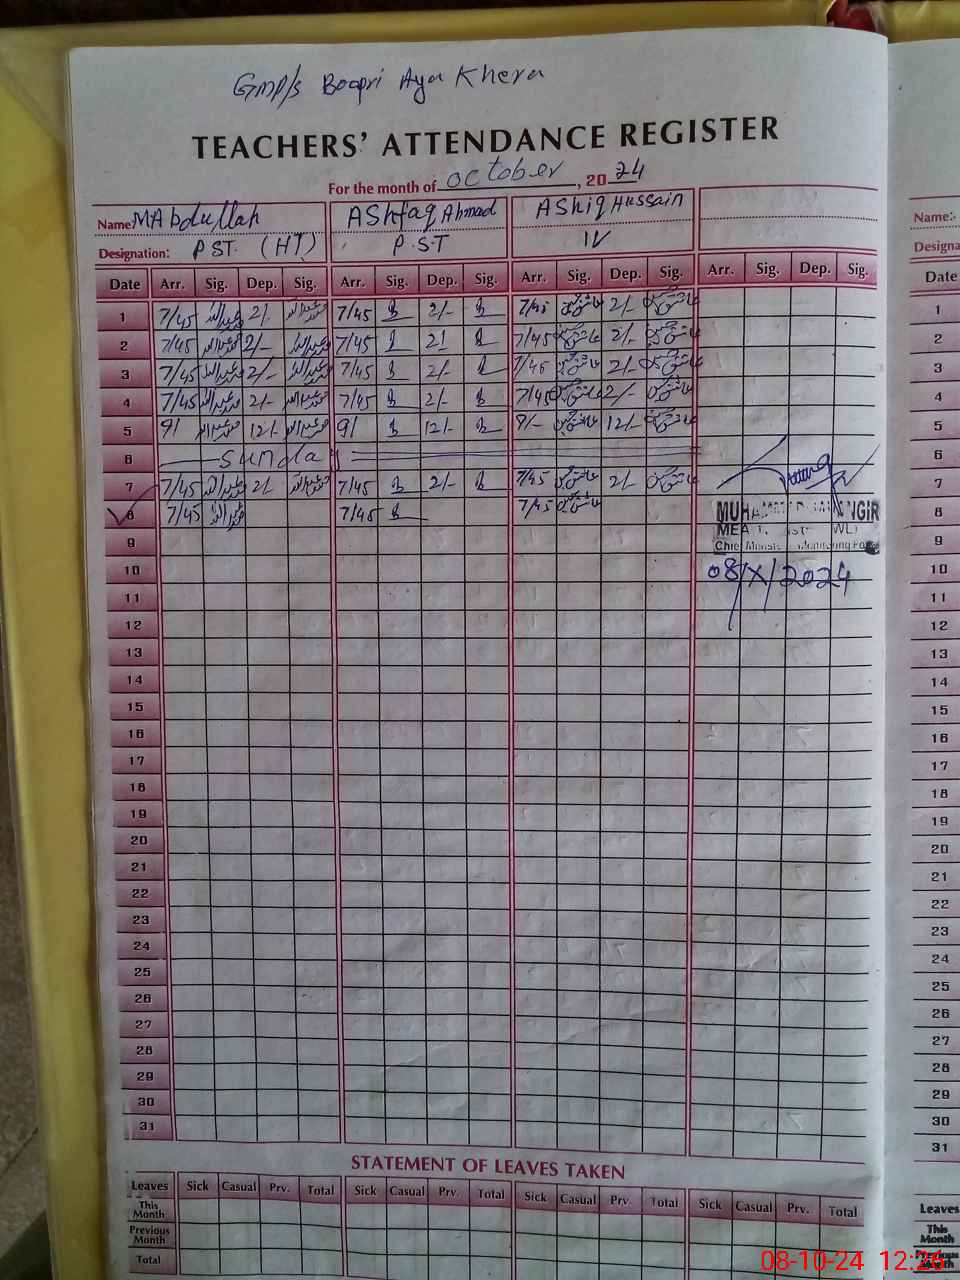 GMP/s Boapri Aya Khera
TEACHERS' ATTENDANCE REGISTER
For the month of October, 2024
Name: M Abdullah Ashfaq Ahmad Ashiq Hussain Name:-
Designation: PST. (HT) P.S.T IV Designa
Date Arr. Sig. Dep. Sig. Arr. Sig. Dep. Sig. Arr. Sig. Dep. Sig. Arr. Sig. Dep. Sig. Date
1 7/45 2/- 7/45 2/- 7/45 2/- 1
2 7/45 2/- 7/45 2/- 7/45 2/- 2
3 7/45 2/- 7/45 2/- 7/45 2/- 3
4 7/45 2/- 7/45 2/- 7/45 2/- 4
5 9/ 12/- 9/ 12/- 9/- 12/- 5
6 Sunday 6
7 7/45 2/- 7/45 2/- 7/45 2/- 7
8 7/45 7/45 7/45 8
MUHAMMAD JAHANGIR
MEA
Chief Minister Monitoring Force
9 9
08/X/2024
10 10
11 11
12 12
13 13
14 14
15 15
16 16
17 17
18 18
19 19
20 20
21 21
22 22
23 23
24 24
25 25
26 26
27 27
28 28
29 29
30 30
31 31
STATEMENT OF LEAVES TAKEN
Leaves Sick Casual Prv. Total Sick Casual Prv. Total Sick Casual Prv. Total Sick Casual Prv. Total Leaves
This Month This Month
Previous Month Previous Month
Total
08-10-24 12:26